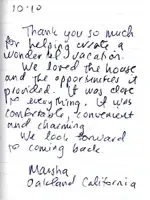 10:10
Thank you so much
for helping create a
wonderful vacation.
We loved the house
and the opportunities it
provided. It was close
to everything. It was
comfortable, convenient
and charming
We look forward
to coming back
Marsha
Oakland California